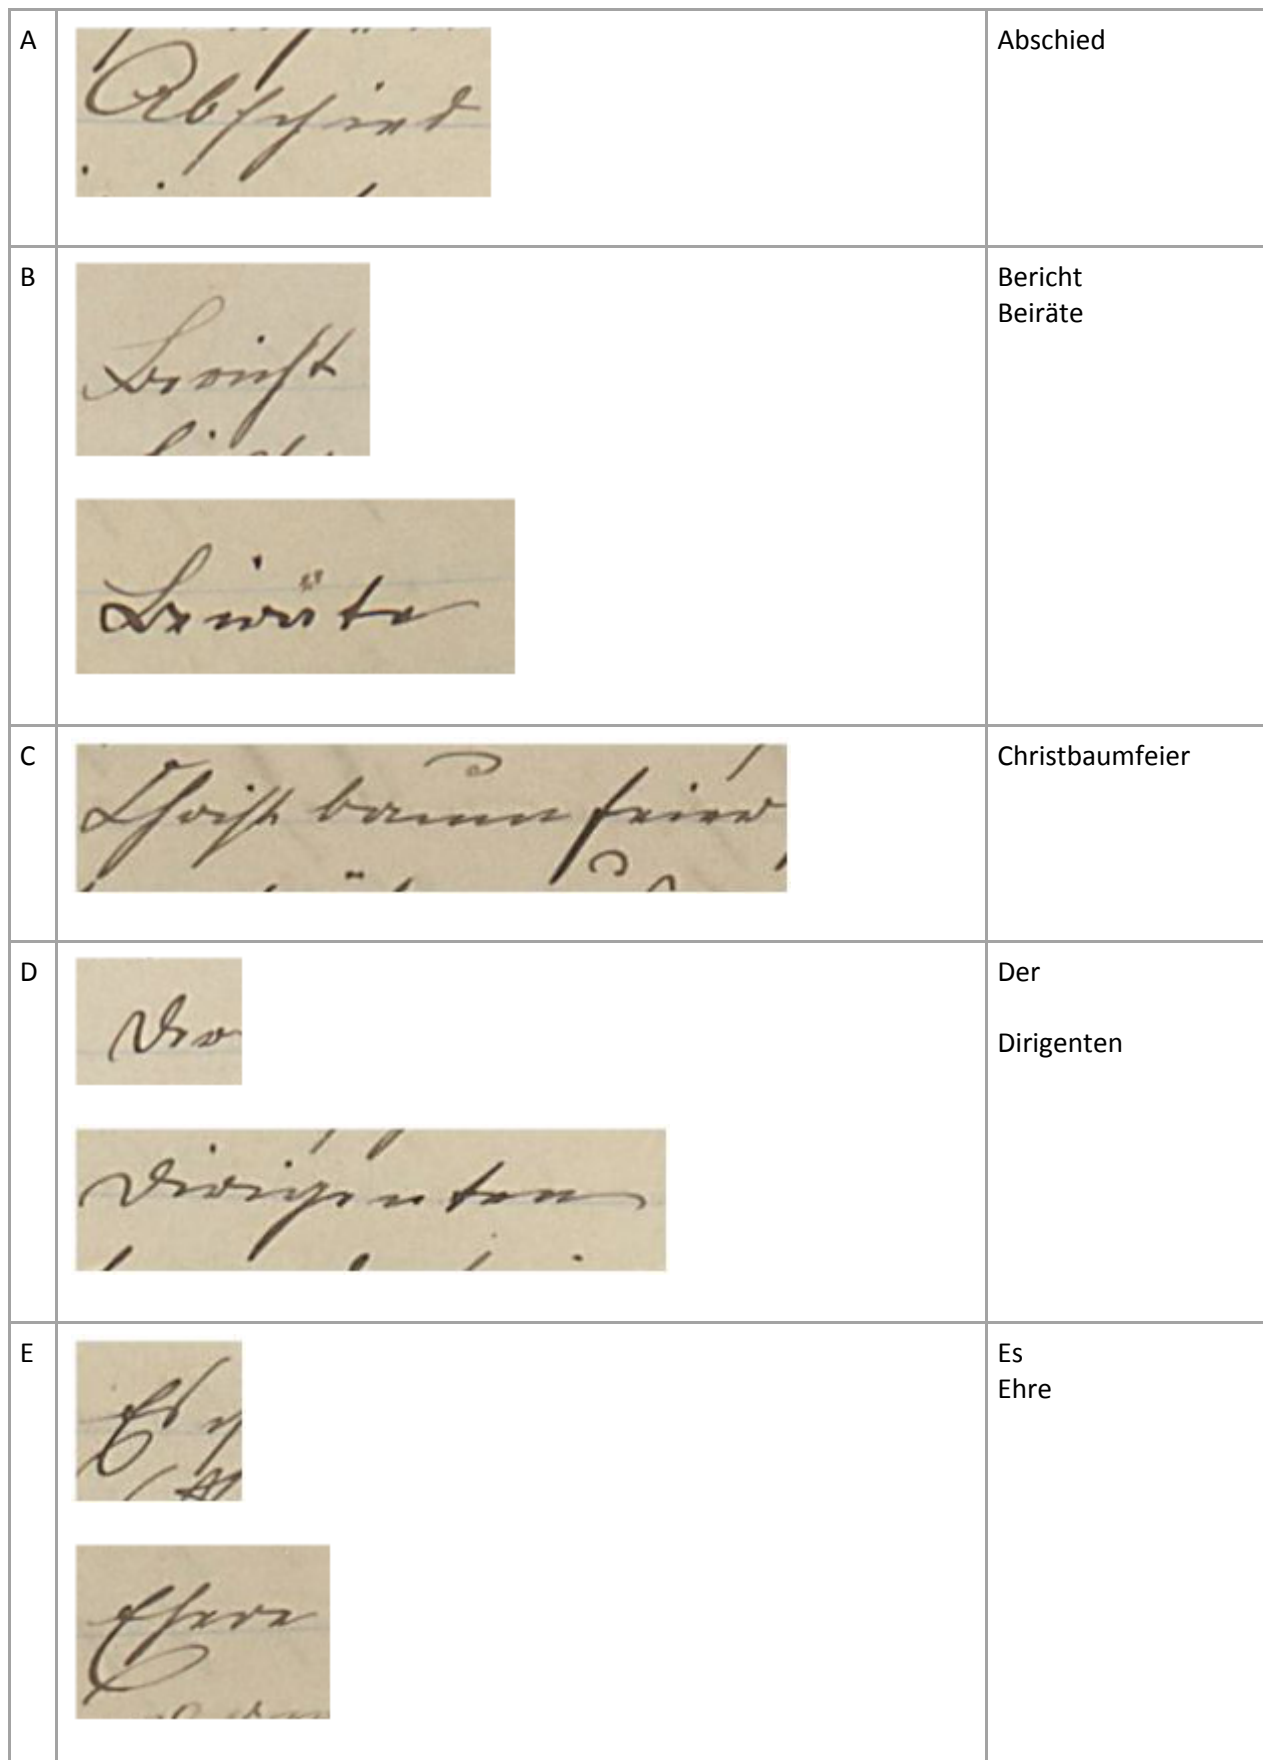 A
Abschied
Abschied
B
Bericht
Beiräte
Bericht
Beiräte
C
Christbaumfeier
Christbaumfeier
D
Der
Dirigenten
Der
Dirigenten
E
Es
Ehre
Es
Ehre